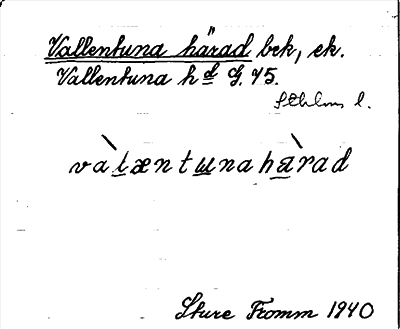 Vallentuna härad bek, ek.
Vallentuna hd G. 45.
Sthlms l.
va`læntunahä`rad
Sture Fromm 1940